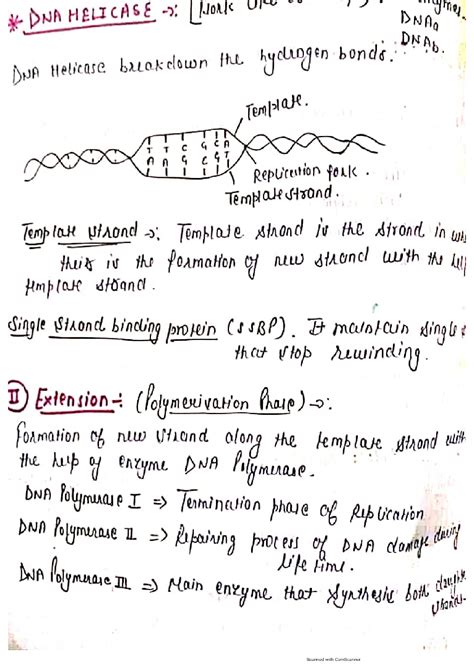 * DNA HELICASE →: [Work
DNAa
DNAb.
DNA Helicase breakdown the hydrogen bonds.
Template.
T T C G C A
A A G C G T
Replication fork.
Template strand.
Template strand →: Template strand is the strand in
their is the formation of new strand with the
template strand.
Single strand binding protein (SSBP). It maintain single
that stop rewinding.
II Extension -: (Polymerivation Phase) →:
Formation of new strand along the template strand with
the help of enzyme DNA Polymerase.
DNA Polymerase I => Termination phase of Replication
DNA Polymerase II => Repairing process of DNA damage during
life time.
DNA Polymerase III => Main enzyme that synthesis both daughter
strands.
Scanned with CamScanner